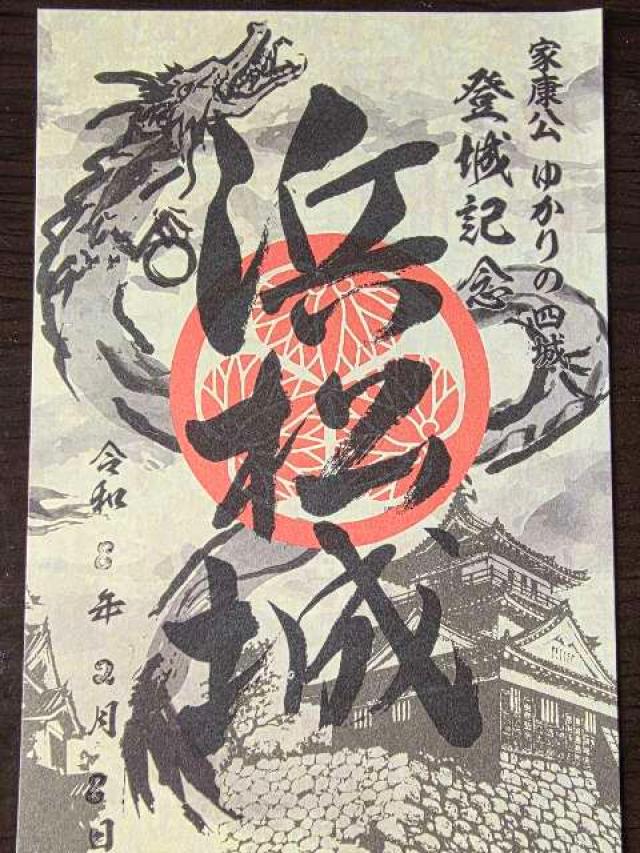 家康公 ゆかりの 四城
登城記念
浜松城
令和8年2月8日